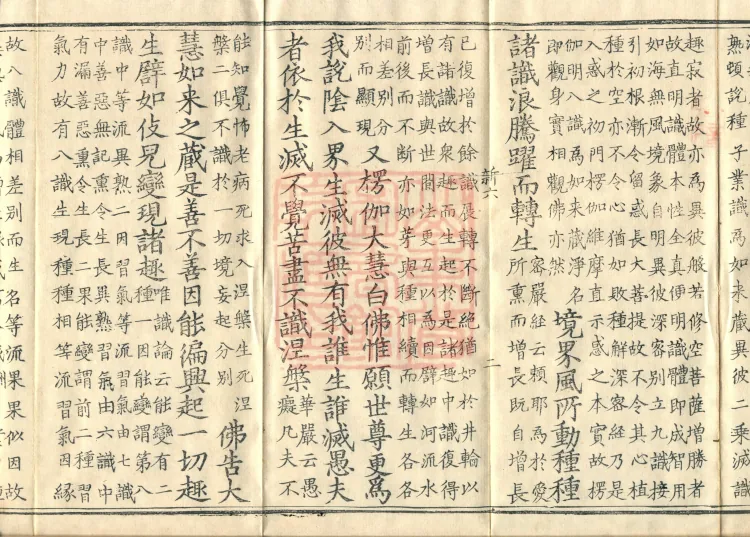 熟頓說種子業識為如來藏異彼二乘滅識
趣寂者故亦為異彼般若修空菩薩增勝者
故直明識體本性全真便明識體即成智用
如海無風境象自明異彼深密別立九識接
引初根漸令留惑長大菩提故不令其心植
種於空亦不令心猶如敗種解深密經乃是
入惑之初門楞伽維摩直示惑之本實故楞
伽明八識為如來藏淨名
即觀身實相觀佛亦然
境界風所動種種
諸識浪騰躍而轉生
密嚴經云賴耶為於愛
所熏而增長既自增長
新六
二
已復增於餘識展轉不斷絕猶如於井輪以
有諸識故眾趣而生起於是諸趣中識復得
增長識與世間法更互以為因譬如河流水
前後而不斷亦如芽與種相續而轉生各各
相差別分
別而顯現
又楞伽大慧白佛惟願世尊更為
我說陰入界生滅彼無有我誰生誰滅愚夫
者依於生滅不覺苦盡不識涅槃
華嚴云愚
癡凡夫不
能知覺怖老病死求入涅槃生死涅
槃二俱不識於一切境妄起分別
佛告大
慧如來之藏是善不善因能徧興起一切趣
生譬如伎兒變現諸趣
唯識論云能變有二
種一因能變謂第八
識中等流異熟二因習氣等流習氣由七識
中善惡無記熏令生長異熟習氣由六識中
有漏善惡熏令生長二果能變謂前二種習
氣力故有八識生現種種相等流習氣因緣
故八識體相差別而生名等流果果似因故